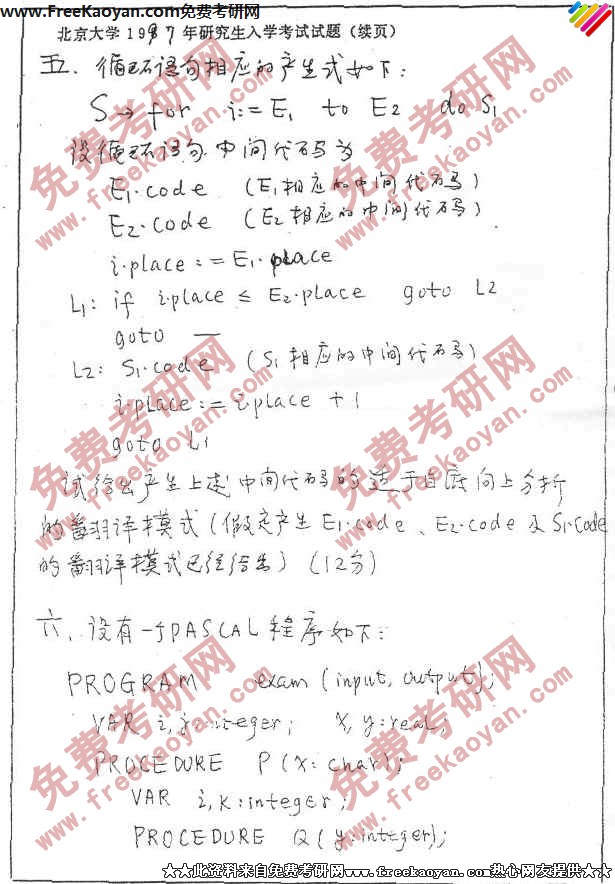 www.FreeKaoyan.com免费考研网
北京大学1997年研究生入学考试试题(续页)
五、循环语句相应的产生式如下:
S→for i:=E1 to E2 do S1
设循环语句中间代码为
E1·code (E1相应的中间代码)
E2·code (E2相应的中间代码)
i·place:=E1·place
L1: if i·place ≤ E2·place goto L2
goto —
L2: S1·code (S1相应的中间代码)
i·place:=i·place+1
goto L1
试给出产生上述中间代码的适于自底向上分析
的翻译模式(假定产生E1·code、E2·code及S1·code
的翻译模式已经给出)(12分)
六、设有一个PASCAL程序如下:
PROGRAM exam(input, output);
VAR i,j:integer; x,y:real;
PROCEDURE P(x:char);
VAR i,k:integer;
PROCEDURE Q(y:integer);
★★此资料来自免费考研网www.freekaoyan.com热心网友提供★★
免费考研网
www.freekaoyan.com
免费考研网
www.freekaoyan.com
免费考研网
www.freekaoyan.com
免费考研网
www.freekaoyan.com
免费考研网
www.freekaoyan.com
免费考研网
www.freekaoyan.com